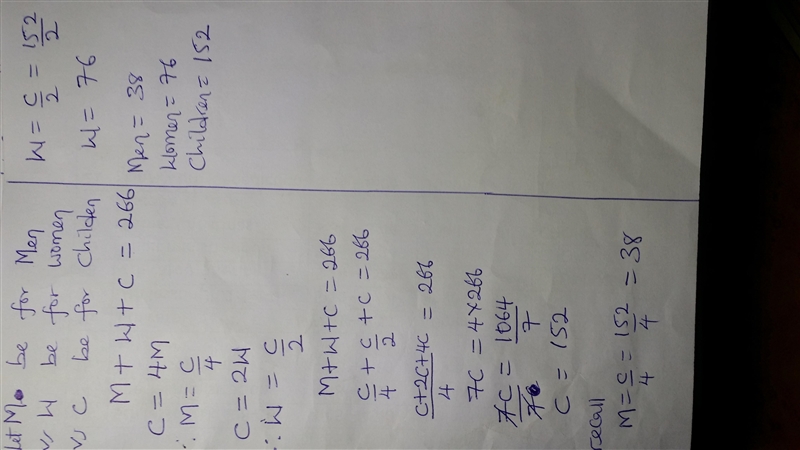 Let M be for Men
" W be for women
" C be for Children
M + W + C = 266
C = 4M
∴ M = C/4
C = 2W
∴ W = C/2
M+W+C = 266
C/4 + C/2 + C = 266
C+2C+4C/4 = 266
7C = 4×266
7C/7 = 1064/7
C = 152
recall
M = C/4 = 152/4 = 38
W = C/2 = 152/2
W = 76
Men = 38
Women = 76
Children = 152